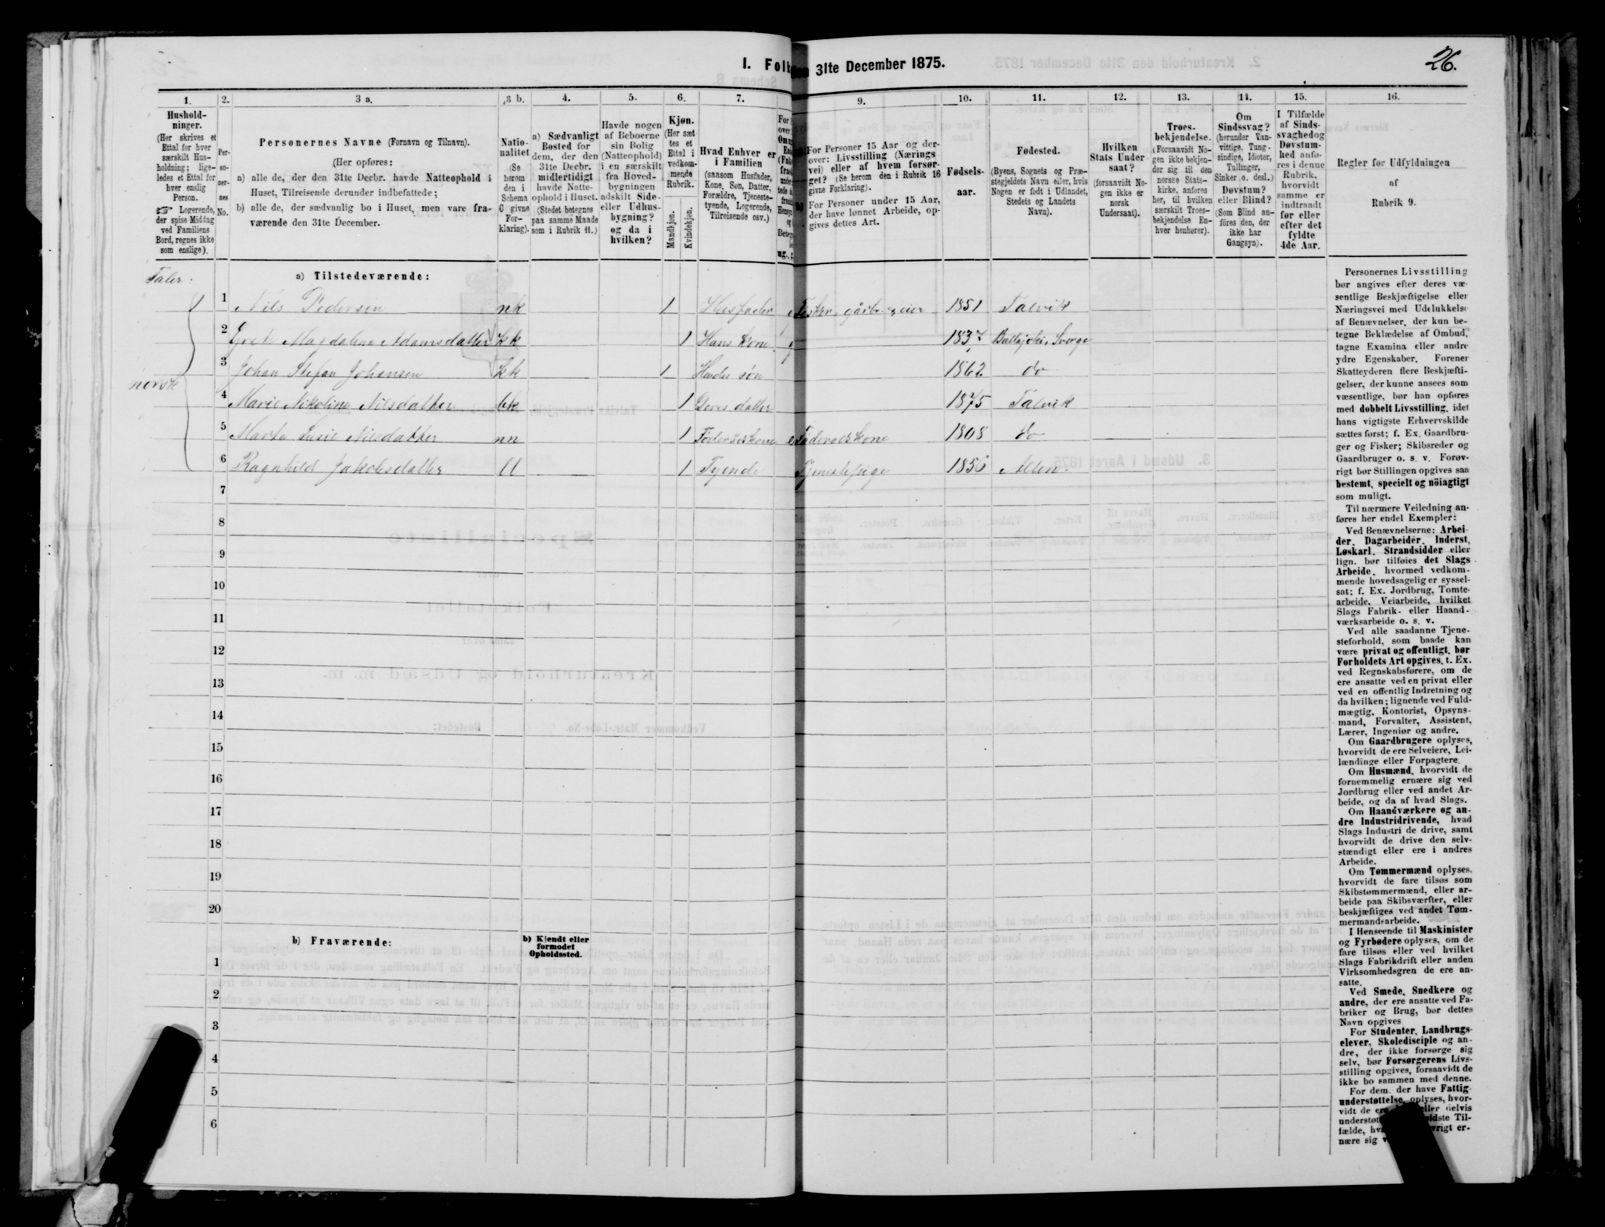 I. Folk
31te December 1875.
26.
1.
2.
3 a.
3 b.
4.
5.
6.
7.
9.
10.
11.
12.
13.
14.
15.
16.
Hushold-
ninger.
(Her skrives et
Ettal for hver
særskilt Hus-
holdning; lige-
ledes et Ettal for
hver enslig
Person.
☞ Logerende,
der spise Middag
ved Familiens
Bord, regnes ikke
som enslige).
Per-
so-
ner-
nes
No.
Personernes Navne (Fornavn og Tilnavn).
(Her opføres:
a) alle de, der den 31te Decbr. havde Natteophold i
Huset, Tilreisende derunder indbefattede;
b) alle de, der sædvanlig bo i Huset, men vare fra-
værende den 31te December.
Natio-
nalitet
(Se
herom
den i
Schema
C givne
For-
klaring).
a) Sædvanligt
Bosted for
dem, der den
31te Decbr.
midlertidigt
havde Natte-
ophold i Huset.
(Stedet betegnes
paa samme Maade
som i Rubrik 11.)
Havde nogen
af Beboerne
sin Bolig
(Natteophold)
i en særskilt
fra Hoved-
bygningen
adskilt Side-
eller Udhus-
bygning?
og da i
hvilken?
Kjøn.
(Her sæt
tes et
Ettal i
vedkom-
mende
Rubrik.
Mandkjøn.
Kvindekjøn.
Hvad Enhver er
i Familien
(saasom Husfader,
Kone, Søn, Datter,
Forældre, Tjeneste-
tyende, Logerende,
Tilreisende osv.)
For Personer 15 Aar og der-
over: Livsstilling (Nærings
vei) eller af hvem forsør-
get? (Se herom den i Rubrik 16
givne Forklaring).
For Personer under 15 Aar,
der have lønnet Arbeide, op-
gives dettes Art.
Fødsels-
aar.
Fødested.
(Byens, Sognets og Præ-
stegjeldets Navn eller, hvis
Nogen er født i Udlandet,
Stedets og Landets
Navn).
Hvilken
Stats Under
saat?
(forsaavidt No-
gen ikke er
norsk
Undersaat).
Troes-
bekjendelse.
(Forsaavidt No-
gen ikke bekjen-
der sig til den
norske Stats-
kirke, anføres
her, til hvilken
særskilt Troes-
bekjendelse En-
hver henhører).
Om
Sindssvag?
(herunder Van-
vittige, Tung-
sindige, Idioter,
Tullinger,
Sinker o. desl.)
Døvstum?
eller Blind?
(Som Blind an-
føres den, der
ikke har
Gangsyn).
I Tilfælde
af Sinds-
svaghed og
Døvstum-
hed anfø-
res i denne
Rubrik,
hvorvidt
samme er
indtraadt
før eller
efter det
fyldte
4de Aar.
Regler for Udfyldningen
af
Rubrik 9.
a) Tilstedeværende:
Taler:
norsk
1 1 Nils Pedersen nk 1 Husfader Fisker, gårdb. eier 1851 Talvik
2 Magdalena Adamsdatter kk 1 Hans kone 1837 Sverge
3 Johan Stefan Johansen kk 1 Hendes søn 1862 do
4 Marie Nikoline Nilsdatter bk 1 Deres datter 1875 Talvik
5 Nilsdatter nn 1 Føderådskone 1808 do
6 Ragnhild Jakobsdatter ll 1 Tjende Tjenestepige 1856 Alten
7
8
9
10
11
12
13
14
15
16
17
18
19
20
b) Fraværende:
b) Kjendt eller
formodet
Opholdssted.
1
2
3
4
5
6
Personernes Livsstilling
bør angives efter deres væ-
sentlige Beskjæftigelse eller
Næringsvei med Udelukkelse
af Benævnelser, der kun be-
tegne Beklædelse af Ombud,
tagne Examina eller andre
ydre Egenskaber. Forener
Skatteyderen flere Beskjæfti-
gelser, der kunne ansees som
væsentlige, bør han opføres
med dobbelt Livsstilling, idet
hans vigtigste Erhvervskilde
sættes først; f. Ex. Gaardbru-
ger og Fisker; Skibsreder og
Gaardbruger o. s. v. Forøv-
rigt bør Stillingen opgives saa
bestemt, specielt og nöiagtigt
som muligt.
Til nærmere Veiledning an-
føres her endel Exempler:
Ved Benævnelserne: Arbei-
der, Dagarbeider, Inderst,
Løskarl, Strandsidder eller
lign. bør tilføies det Slags
Arbeide, hvormed vedkom-
mende hovedsagelig er syssel-
sat; f. Ex. Jordbrug, Tomte-
arbeide, Veiarbeide, hvilket
Slags Fabrik- eller Haand-
værksarbeide o. s. v.
Ved alle saadanne Tjene-
steforhold, som baade kan
være privat og offentligt, bør
Forholdets Art opgives, t. Ex.
ved Regnskabsførere, om de
ere ansatte ved en privat eller
ved en offentlig Indretning og
da hvilken; lignende ved Fuld-
mægtig, Kontorist, Opsyns-
mand, Forvalter, Assistent,
Lærer, Ingeniør og andre.
Om Gaardbrugere oplyses,
hvorvidt de ere Selveiere, Lei-
lændinge eller Forpagtere.
Om Husmænd, hvorvidt de
fornemmelig ernære sig ved
Jordbrug eller ved andet Ar-
beide, og da af hvad Slags.
Om Haandværkere og an-
dre Industridrivende, hvad
Slags Industri de drive, samt
hvorvidt de drive den selv-
stændigt eller ere i andres
Arbeide.
Om Tømmermænd oplyses,
hvorvidt de fare tilsøs som
Skibstømmermænd, eller ar-
beide paa Skibsværfter, eller
beskjæftiges ved andet Tøm-
mermandsarbeide.
I Henseende til Maskinister
og Fyrbødere oplyses, om de
fare tilsøs eller ved hvilket
Slags Fabrikdrift eller anden
Virksomhedsgren de ere an-
satte.
Ved Smede, Snedkere og
andre, der ere ansatte ved Fa-
briker og Brug, bør dettes
Navn opgives
For Studenter, Landbrugs-
elever, Skoledisciple og an-
dre, der ikke forsørge sig
selv, bør Forsørgerens Livs-
stilling opgives, forsaavidt de
ikke bo sammen med denne.
For dem, der have Fattig-
understøttelse, oplyses, hvor-
vidt de delvis
Til-
fælde, er-
nære sig